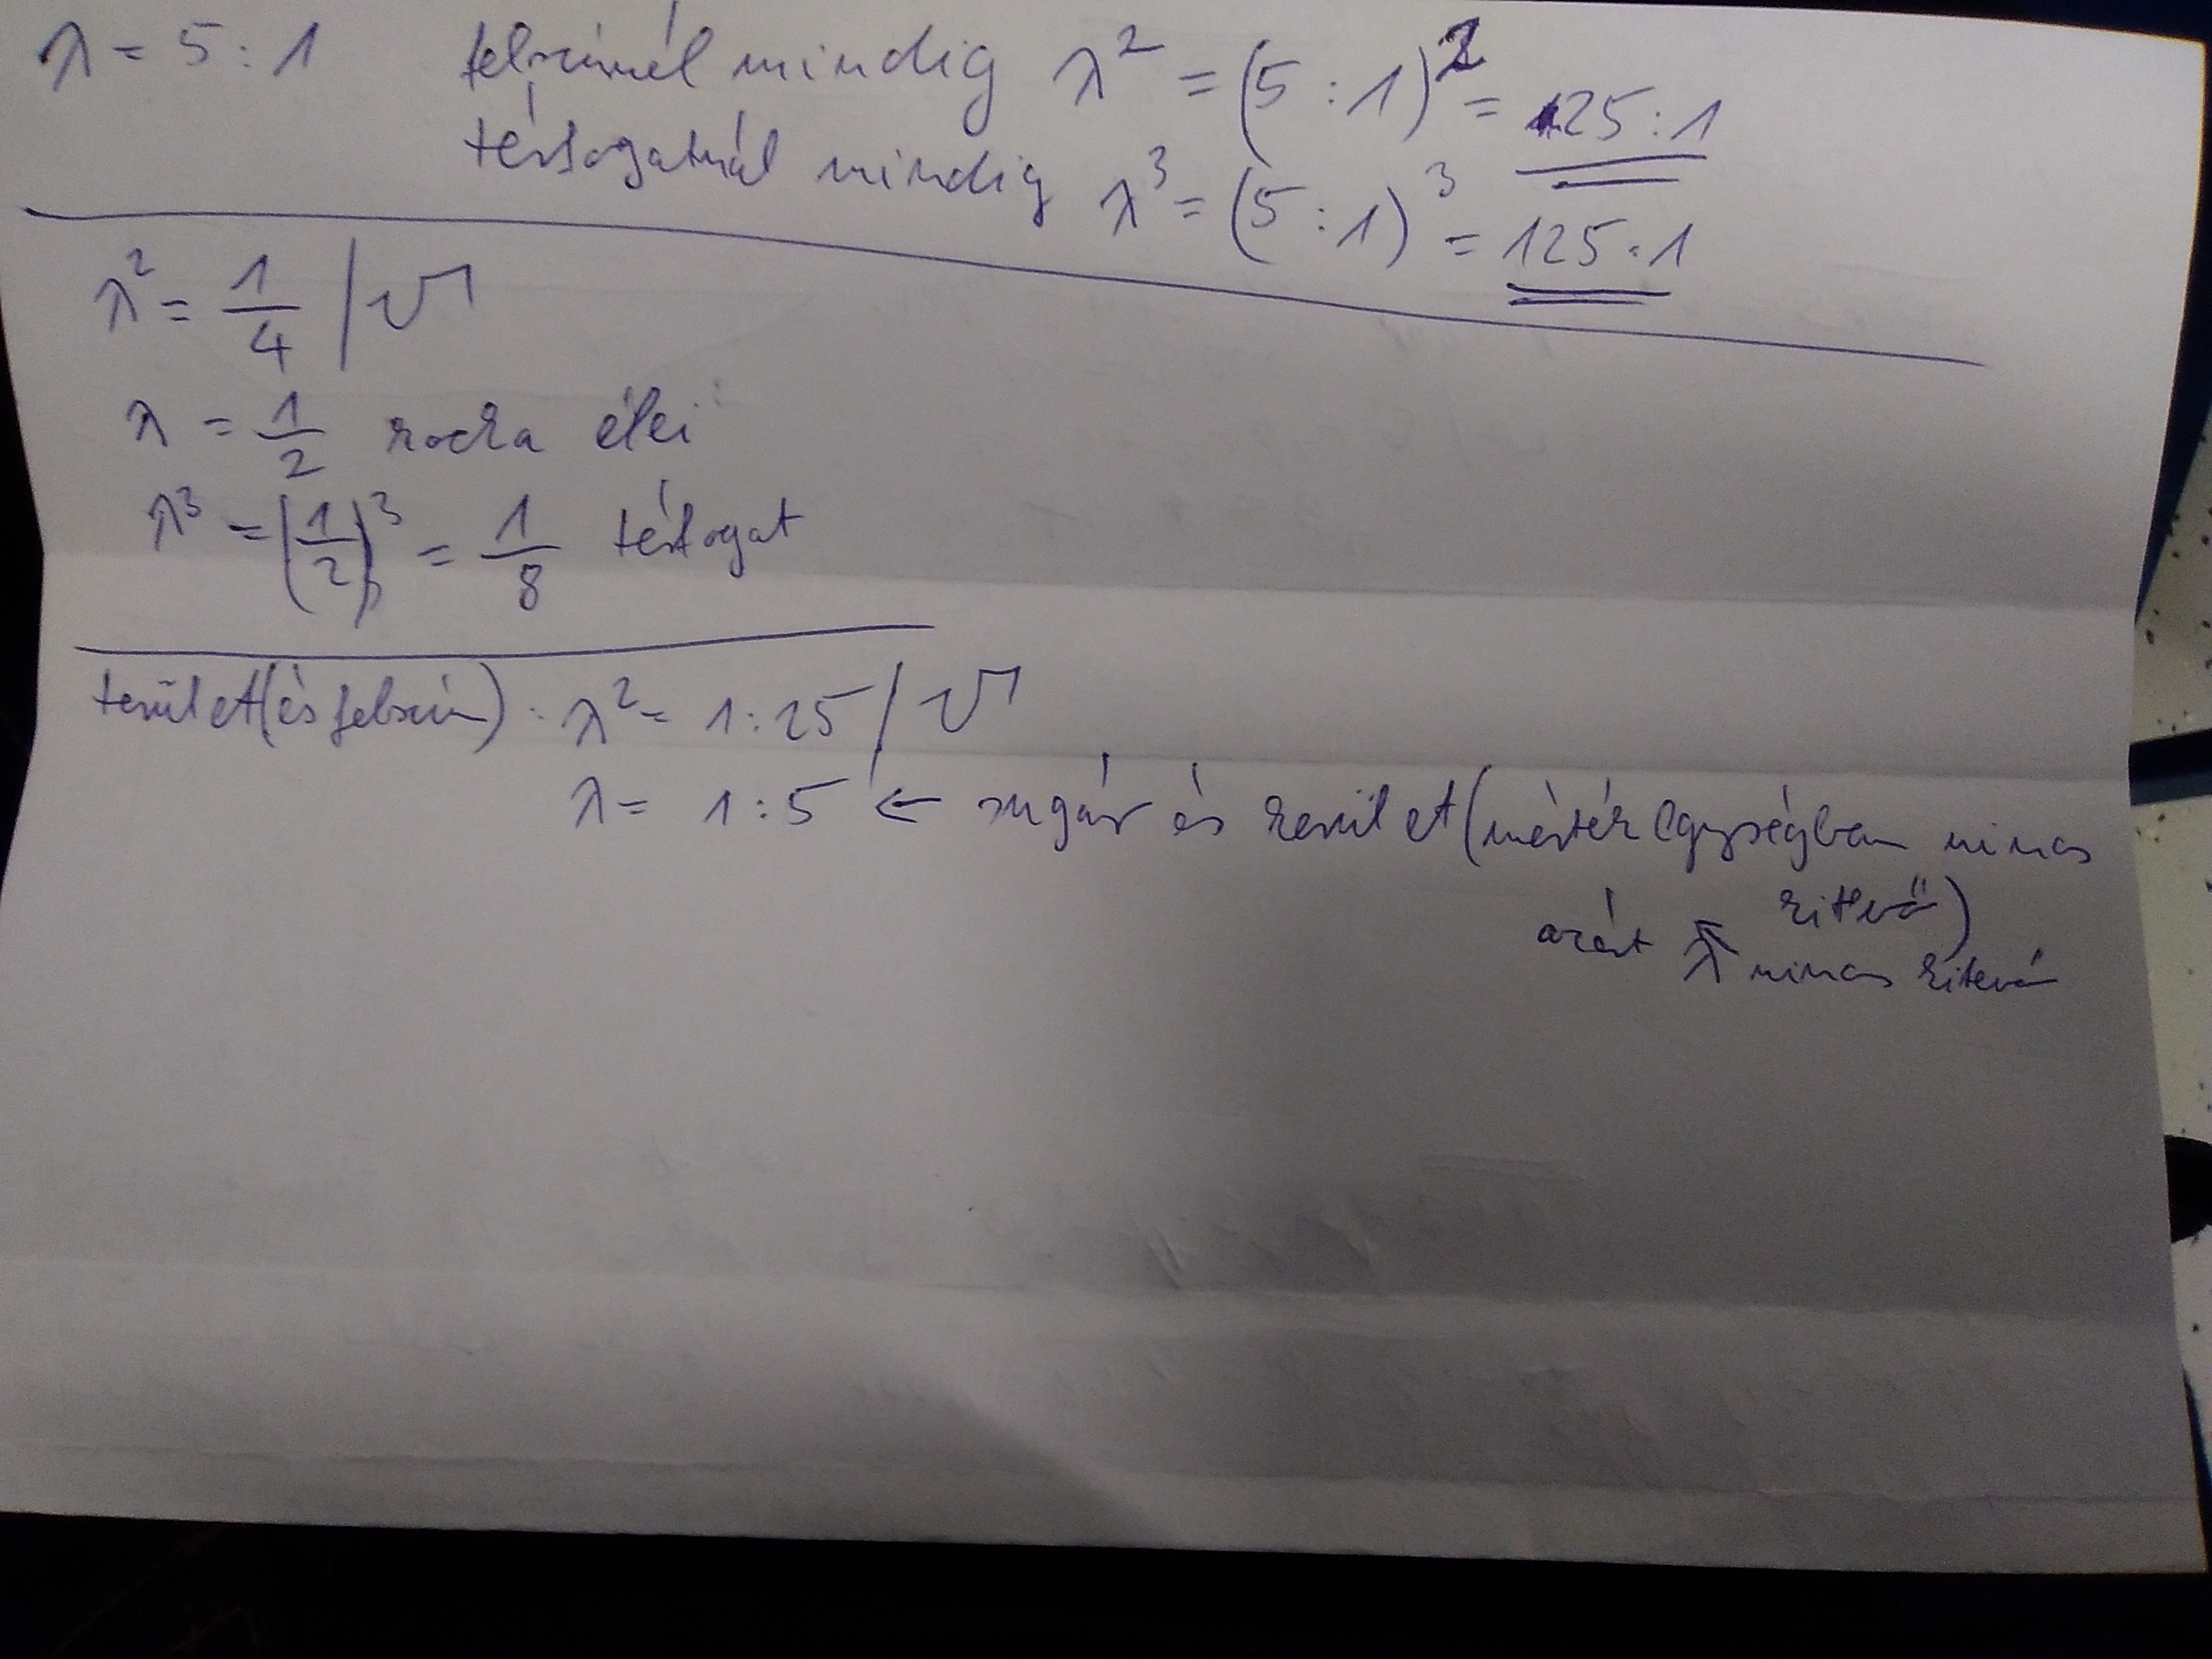 λ = 5 : 1 felszínnél mindig λ² = (5 : 1)² = 25 : 1
térfogatnál mindig λ³ = (5 : 1)³ = 125 : 1
λ² = 1/4 / √
λ = 1/2 kocka élei
λ³ = (1/2)³ = 1/8 térfogat
terület (és felszín) : λ² = 1 : 25 / √
λ = 1 : 5 ← sugár és kerület (mértékegységben nincs
kitevő)
azért λ nincs kitevő